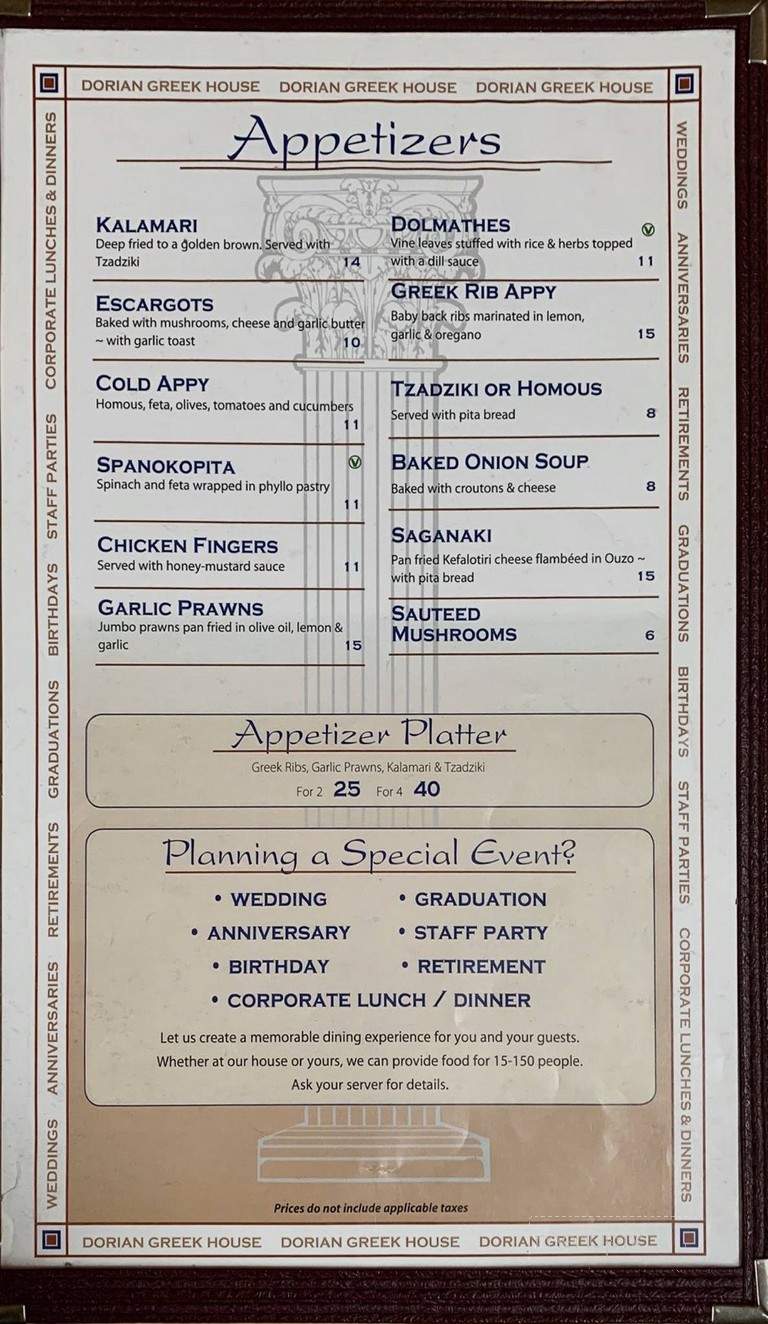 DORIAN GREEK HOUSE DORIAN GREEK HOUSE DORIAN GREEK HOUSE
Appetizers
KALAMARI
Deep fried to a golden brown. Served with
Tzadziki 14
ESCARGOTS
Baked with mushrooms, cheese and garlic butter
~ with garlic toast 10
COLD APPY
Homous, feta, olives, tomatoes and cucumbers
11
SPANOKOPITA V
Spinach and feta wrapped in phyllo pastry
11
CHICKEN FINGERS
Served with honey-mustard sauce 11
GARLIC PRAWNS
Jumbo prawns pan fried in olive oil, lemon &
garlic 15
DOLMATHES V
Vine leaves stuffed with rice & herbs topped
with a dill sauce 11
GREEK RIB APPY
Baby back ribs marinated in lemon,
garlic & oregano 15
TZADZIKI OR HOMOUS
Served with pita bread 8
BAKED ONION SOUP
Baked with croutons & cheese 8
SAGANAKI
Pan fried Kefalotiri cheese flambéed in Ouzo ~
with pita bread 15
SAUTEED
MUSHROOMS 6
Appetizer Platter
Greek Ribs, Garlic Prawns, Kalamari & Tzadziki
For 2 25 For 4 40
Planning a Special Event?
• WEDDING • GRADUATION
• ANNIVERSARY • STAFF PARTY
• BIRTHDAY • RETIREMENT
• CORPORATE LUNCH / DINNER
Let us create a memorable dining experience for you and your guests.
Whether at our house or yours, we can provide food for 15-150 people.
Ask your server for details.
Prices do not include applicable taxes
DORIAN GREEK HOUSE DORIAN GREEK HOUSE DORIAN GREEK HOUSE
WEDDINGS ANNIVERSARIES RETIREMENTS GRADUATIONS BIRTHDAYS STAFF PARTIES CORPORATE LUNCHES & DINNERS
WEDDINGS ANNIVERSARIES RETIREMENTS GRADUATIONS BIRTHDAYS STAFF PARTIES CORPORATE LUNCHES & DINNERS